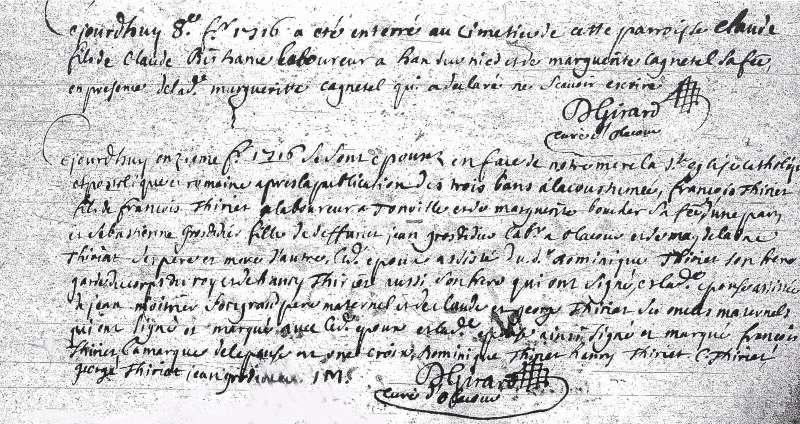 cejourdhuy 8.e fr. 1716 a eté enterré au cimetiere de cette parroisse claude
fils de Claude laboureur a han sur nied et de marguerite cagnetel sa fe.,
en presence de lad.e margueritte cagnetel qui a declaré ne scavoir escrire
D Girard
curé d'olacour
cejourdhuy onzieme fr. 1716 se sont epouzez en face de notre mere la Ste eglise catholique
apostolique et romaine apres la publication des trois bans a lacoutumee, françois Thiriet
fils de françois Thiriet laboureur a Tonville et de marguerite boucher sa feme d'une part
et sebastienne grosdidier fille de deffunct jean grosdidier lab.r a olacour et de magdelaine
Thiriat ses pere et mere d'autre. led. epoux assisté du s.r dominique Thiriet son frere
garde du corps du roy et de hanry Thiriet aussi son frere qui ont signé, et lad.e epouse assistée
de jean son grand pere maternel et de claude et george Thiriat ses oncles maternels
qui ont signé et marqué avec led. epoux et lad.e epouse ainsi signé et marqué françois
Thiriet la marque de lepouse est une croix, Dominique Thiriet hanry Thiriet C Thiriat
george Thiriat jean IM.
D Girard
curé d'olacour